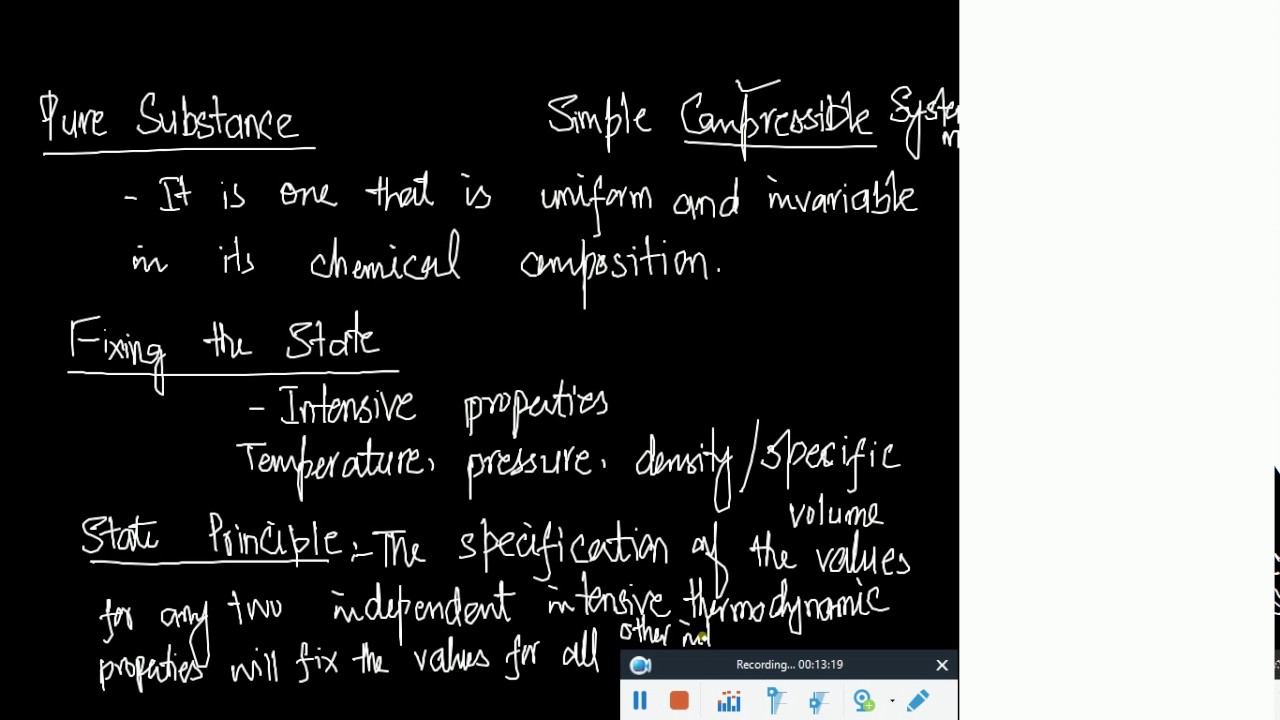 Pure Substance Simple Compressible System
- It is one that is uniform and invariable
in its chemical composition.
Fixing the State
- Intensive properties
Temperature, pressure, density/specific
volume
State Principle:- The specification of the values
for any two independent intensive thermodynamic
properties will fix the values for all other
Recording... 00:13:19